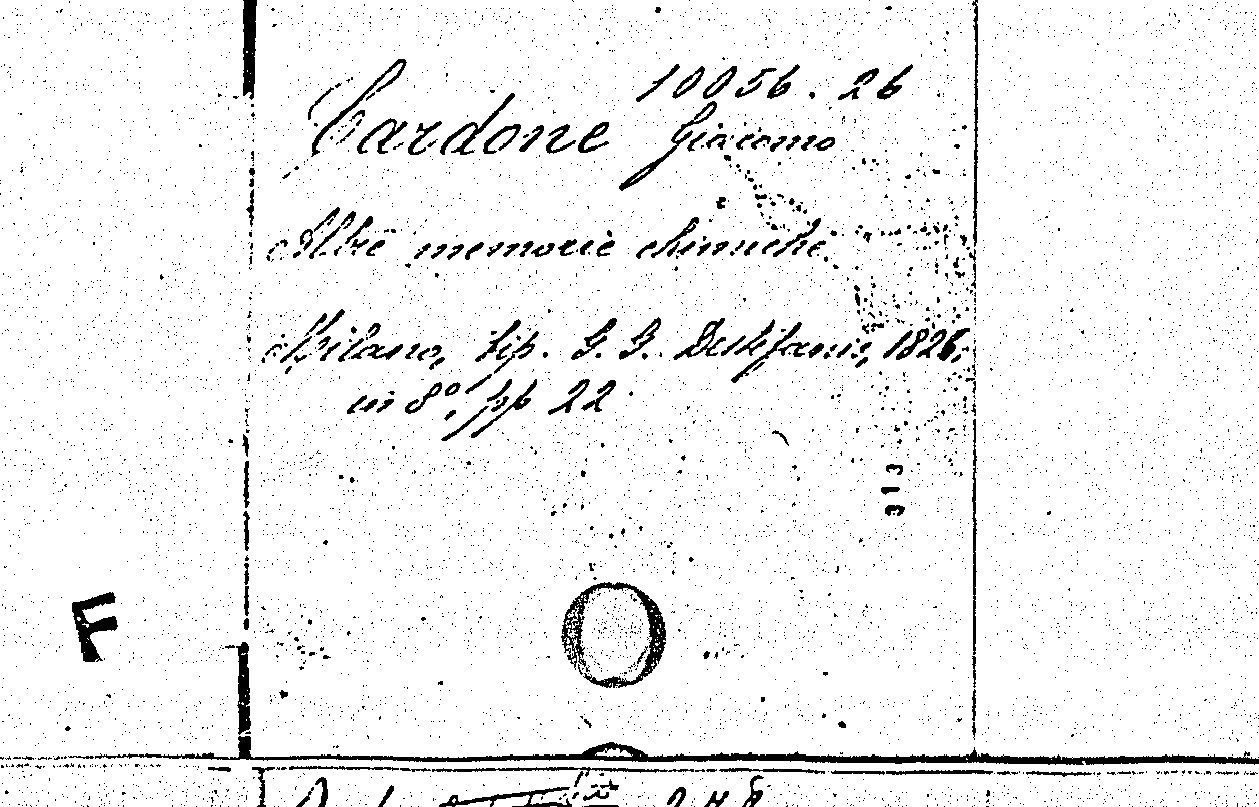 10056. 26
Cardone Giacomo
Altre memorie chimiche
Milano, tip. G. G. Destefanis, 1826;
in 8°, pp 22
313
F